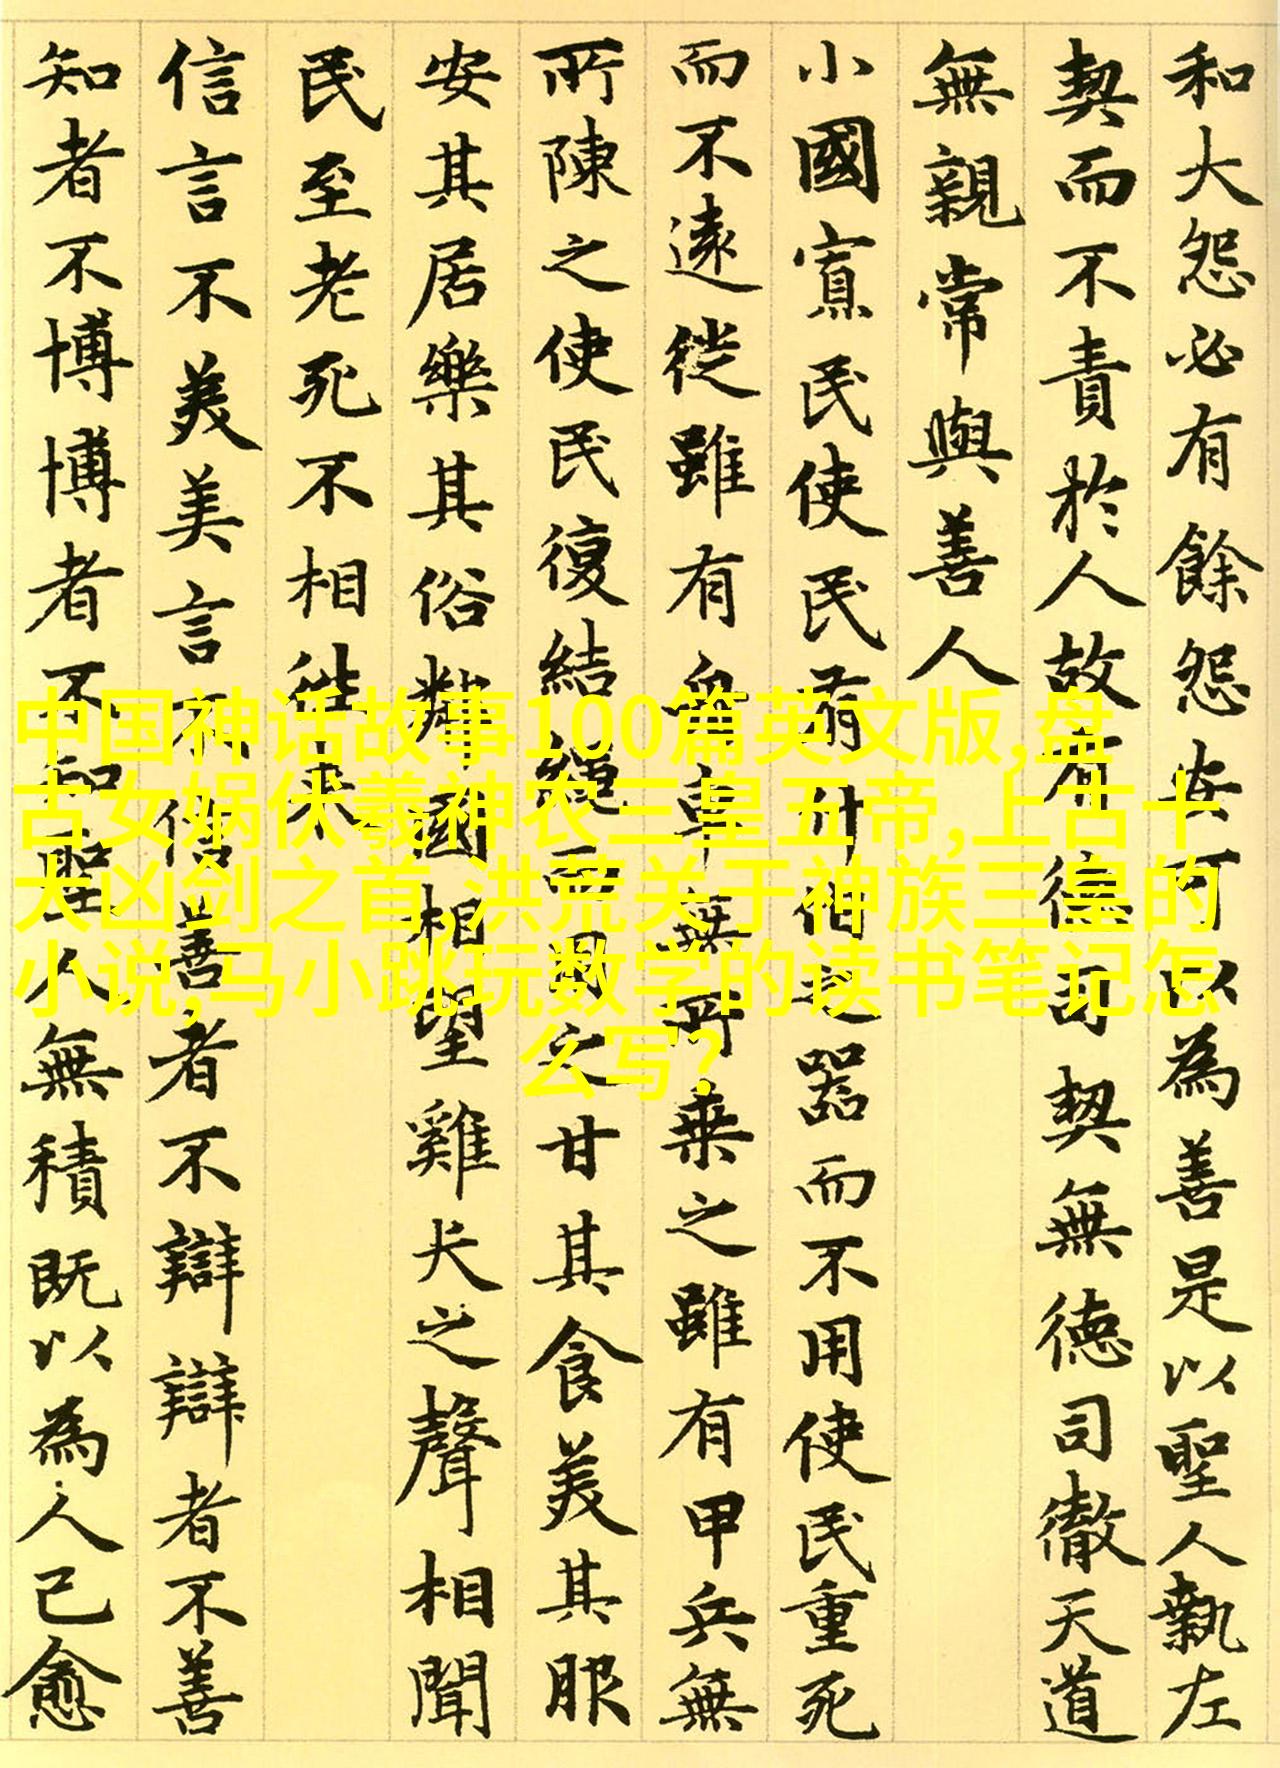 和大怨必有餘怨安可以為善是以聖人執左
契而不責於人故有德司契無德司徹天道
無親常與善人
小國寡民使民有什伯之器而不用使民重死
而不遠徙雖有舟車無所乗之雖有甲兵無
所陳之使民復結繩而用之甘其食美其服
安其居樂其俗鄰國相望雞犬之聲相聞
民至老死不相往来
信言不美美言不信善者不辯辯者不善
知者不博博者不知聖人無積既以為人己愈
中国神话故事100篇英文版,盘
古女娲伏羲神农三皇五帝,上古十
大凶剑之首,洪荒关于神族三皇的
小说,马小跳玩数学的读书笔记怎
么写?